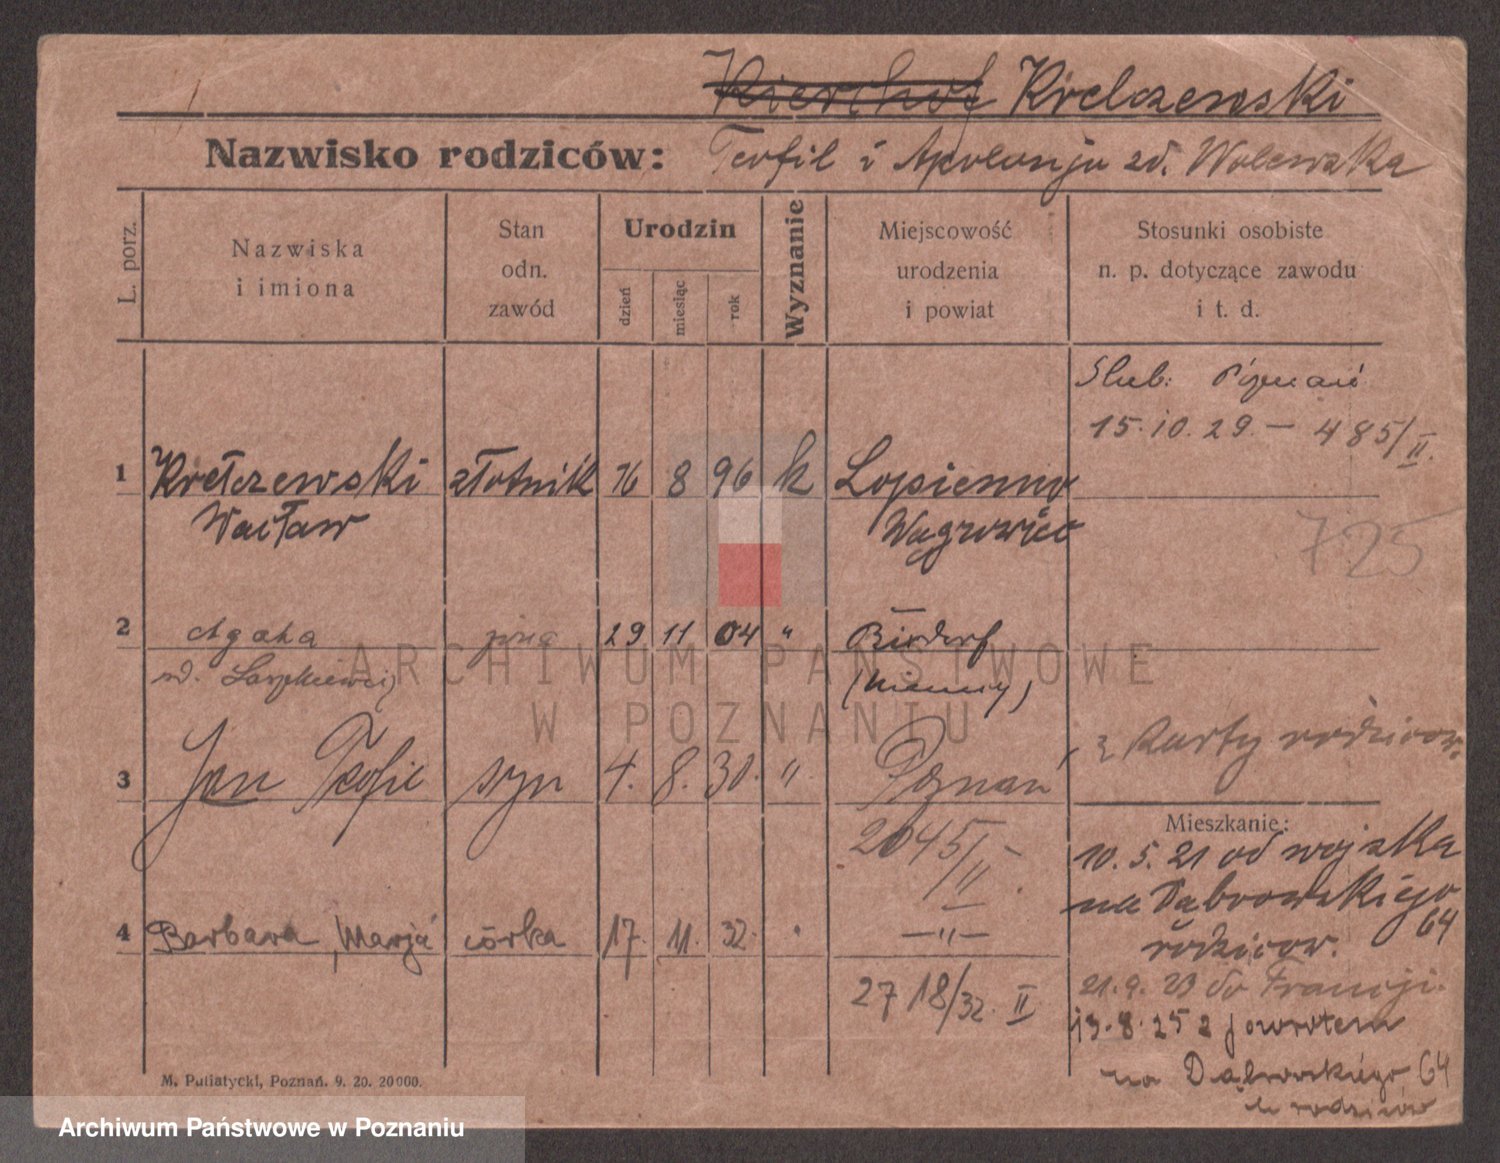 Kierchof Krelczewski
Nazwisko rodziców: Teofil i Apolonja zd. Walewska
L. porz.
Nazwiska
i imiona
Stan
odn.
zawód
Urodzin
dzień
miesiąc
rok
Wyznanie
Miejscowość
urodzenia
i powiat
Stosunki osobiste
n. p. dotyczące zawodu
i t. d.
Ślub: Poznań
15.10.29.— 485/II.
1 Krełczewski złotnik 16 8 96 k Łopienno
Wacław Wągrowiec
725
2 Agata żona 29 11 04 "
zd. (Niemcy)
3 Jan Teofil syn 4. 8. 30. " Poznań
z Karty rodziców.
2045/II
Mieszkanie:
10.5.21 od wojska
na Dąbrowskiego
64
rodziców.
4 Barbara, Marja córka 17. 11. 32. —"—
21.9.23 do Francji.
2718/32. II
13.8.25 z powrotem
na Dąbrowskiego 64
u rodziców
M. Putiatycki, Poznań. 9. 20. 20000.
ARCHIWUM PAŃSTWOWE
W POZNANIU
Archiwum Państwowe w Poznaniu